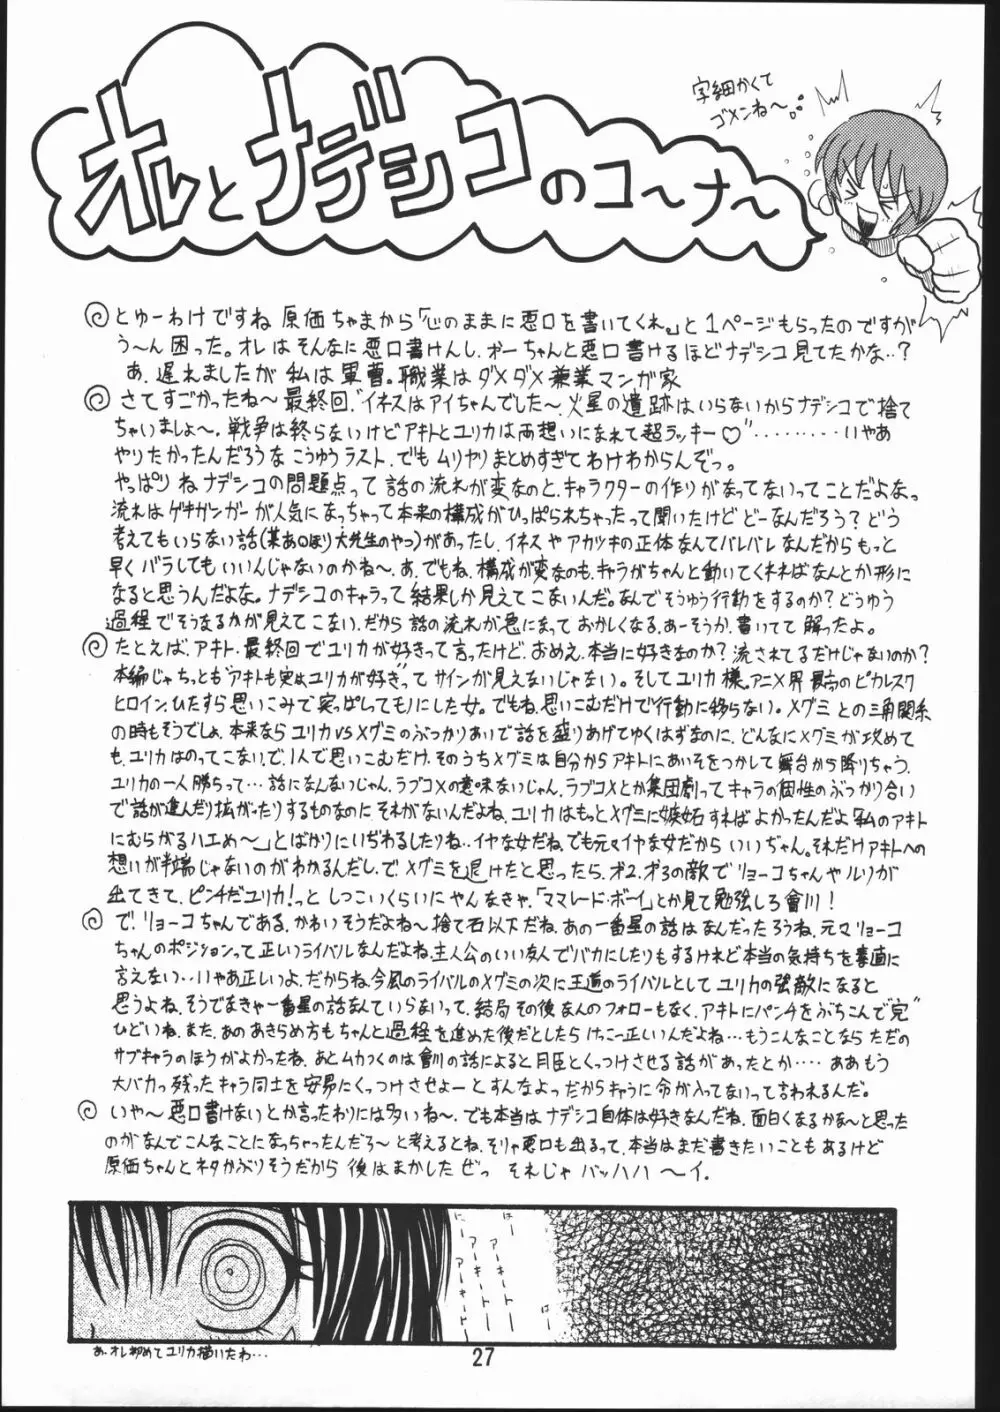 オレとナデシコのコ〜ナ〜
字細かくて
ゴメンね〜
とゆーわけですね 原価ちゃまから「心のままに悪口を書いてくれ。」と1ページもらったのですが
う〜ん困った。オレはそんなに悪口書けんし、かーちゃんと悪口書けるほどナデシコ見てたかな‥?
あ、遅れましたが私は軍曹。職業はダメダメ兼業マンガ家
さてすごかったね〜最終回、“イネスはアイちゃんでした〜火星の遺跡はいらないからナデシコで捨て
ちゃいましょ〜、戦争は終らないけどアキトとユリカは両想いになれて超ラッキー♡”‥‥‥‥‥いやあ
やりたかったんだろうなこうゆうラスト、でもムリヤリまとめすぎてわけわからんぞっ。
やっぱりねナデシコの問題点って話の流れが変なのと、キャラクターの作りがなってないってことだよなっ
流れはゲキガンガーが人気になっちゃって本来の構成がひっぱられちゃったって聞いたけどどーなんだろう?どう
考えてもいらない話(某あ○ほり大先生のやつ)があったし、イネスやアカツキの正体なんてバレバレなんだからもっと
早くバラしてもいいんじゃないのかね〜。あ、でもね、構成が変なのも、キャラがちゃんと動いてくれればなんとか形に
なると思うんだよな。ナデシコのキャラって結果しか見えてこないんだ。なんでそうゆう行動をするのか?どうゆう
過程でそうなるかが見えてこない、だから話の流れが急になっておかしくなる、あーそうか、書いてて解ったよ。
たとえば、アキト、最終回でユリカが好きって言ったけど、おめえ、本当に好きなのか?流されてるだけじゃないのか?
本編じゃちっとも“アキトも実はユリカが好き”ってサインが見えないじゃない。そしてユリカ様。アニメ界最高のピカレスク
ヒロイン、ひたすら思いこみで突っぱしってモノにした女。でもね、思いこむだけで行動に移らない。メグミとの三角関係
の時もそうでしょ、本来ならユリカvsメグミのぶっかりあいで話を盛りあげてゆくはずなのに、どんなにメグミが攻めて
も、ユリカはのってこないで、1人で思いこむだけ、そのうちメグミは自分からアキトにあいそをつかして舞台から降りちゃう、
ユリカの一人勝ちって…話になんないじゃん、ラブコメの意味ないじゃん、ラブコメとか集団劇ってキャラの個性のぶっかり合い
で話が進んだり拡がったりするものなのに、それがないんだよね、ユリカはもっとメグミに嫉妬すればよかったんだよ「私のアキト
にむらがるハエめ〜」とばかりにいぢわるしたりね‥イヤな女だね、でも元々イヤな女だからいいぢゃん。それだけアキトへの
想いが半端じゃないのがわかるんだし、で、メグミを退けたと思ったら、才2、才3の敵でリョーコちゃんやルリが
出てきて、ピンチだユリカ!っとしつこいくらいにやんなきゃ、「ママレード・ボーイ」とか見て勉強しろ會川!
で、リョーコちゃんである、かわいそうだよね〜捨て石以下だね、あの一番星の話はなんだったろうね、元々リョーコ
ちゃんのポジションって正しいライバルなんだよね、主人公のいい友人でバカにしたりもするけれど本当の気持ちを素直に
言えない‥いやあ正しいよ、だからね、今風のライバルのメグミの次に王道のライバルとしてユリカの強敵になると
思うよね、そうでなきゃ一番星の話なんていらないって、結局その後なんのフォローもなく、アキトにパンチをぶちこんで“完”
ひどいね、また、あのあきらめ方もちゃんと過程を進めた後だとしたらけっこー正しいんだよね…もうこんなことならただの
サブキャラのほうがよかったね、あとムカつくのは會川の話によると月臣とくっつけさせる話があったとか‥‥ああもう
大バカっ残ったキャラ同士を安易にくっつけさせよーとすんなよっだからキャラに命が入ってないって言われるんだ。
いや〜悪口書けないとか言ったわりには多いね〜、でも本当はナデシコ自体は好きなんだね、面白くなるかな〜と思った
のがなんでこんなことになっちゃったんだろ〜と考えるとね、そりゃ悪口も出るって、本当はまだ書きたいこともあるけど
原価ちゃんとネタかぶりそうだから後はまかしたぜっ それじゃバッハハ〜イ.
はー
に
アーキートー
アーキートー
アーキートー
は
あ、オレ初めてユリカ描いたわ…
27